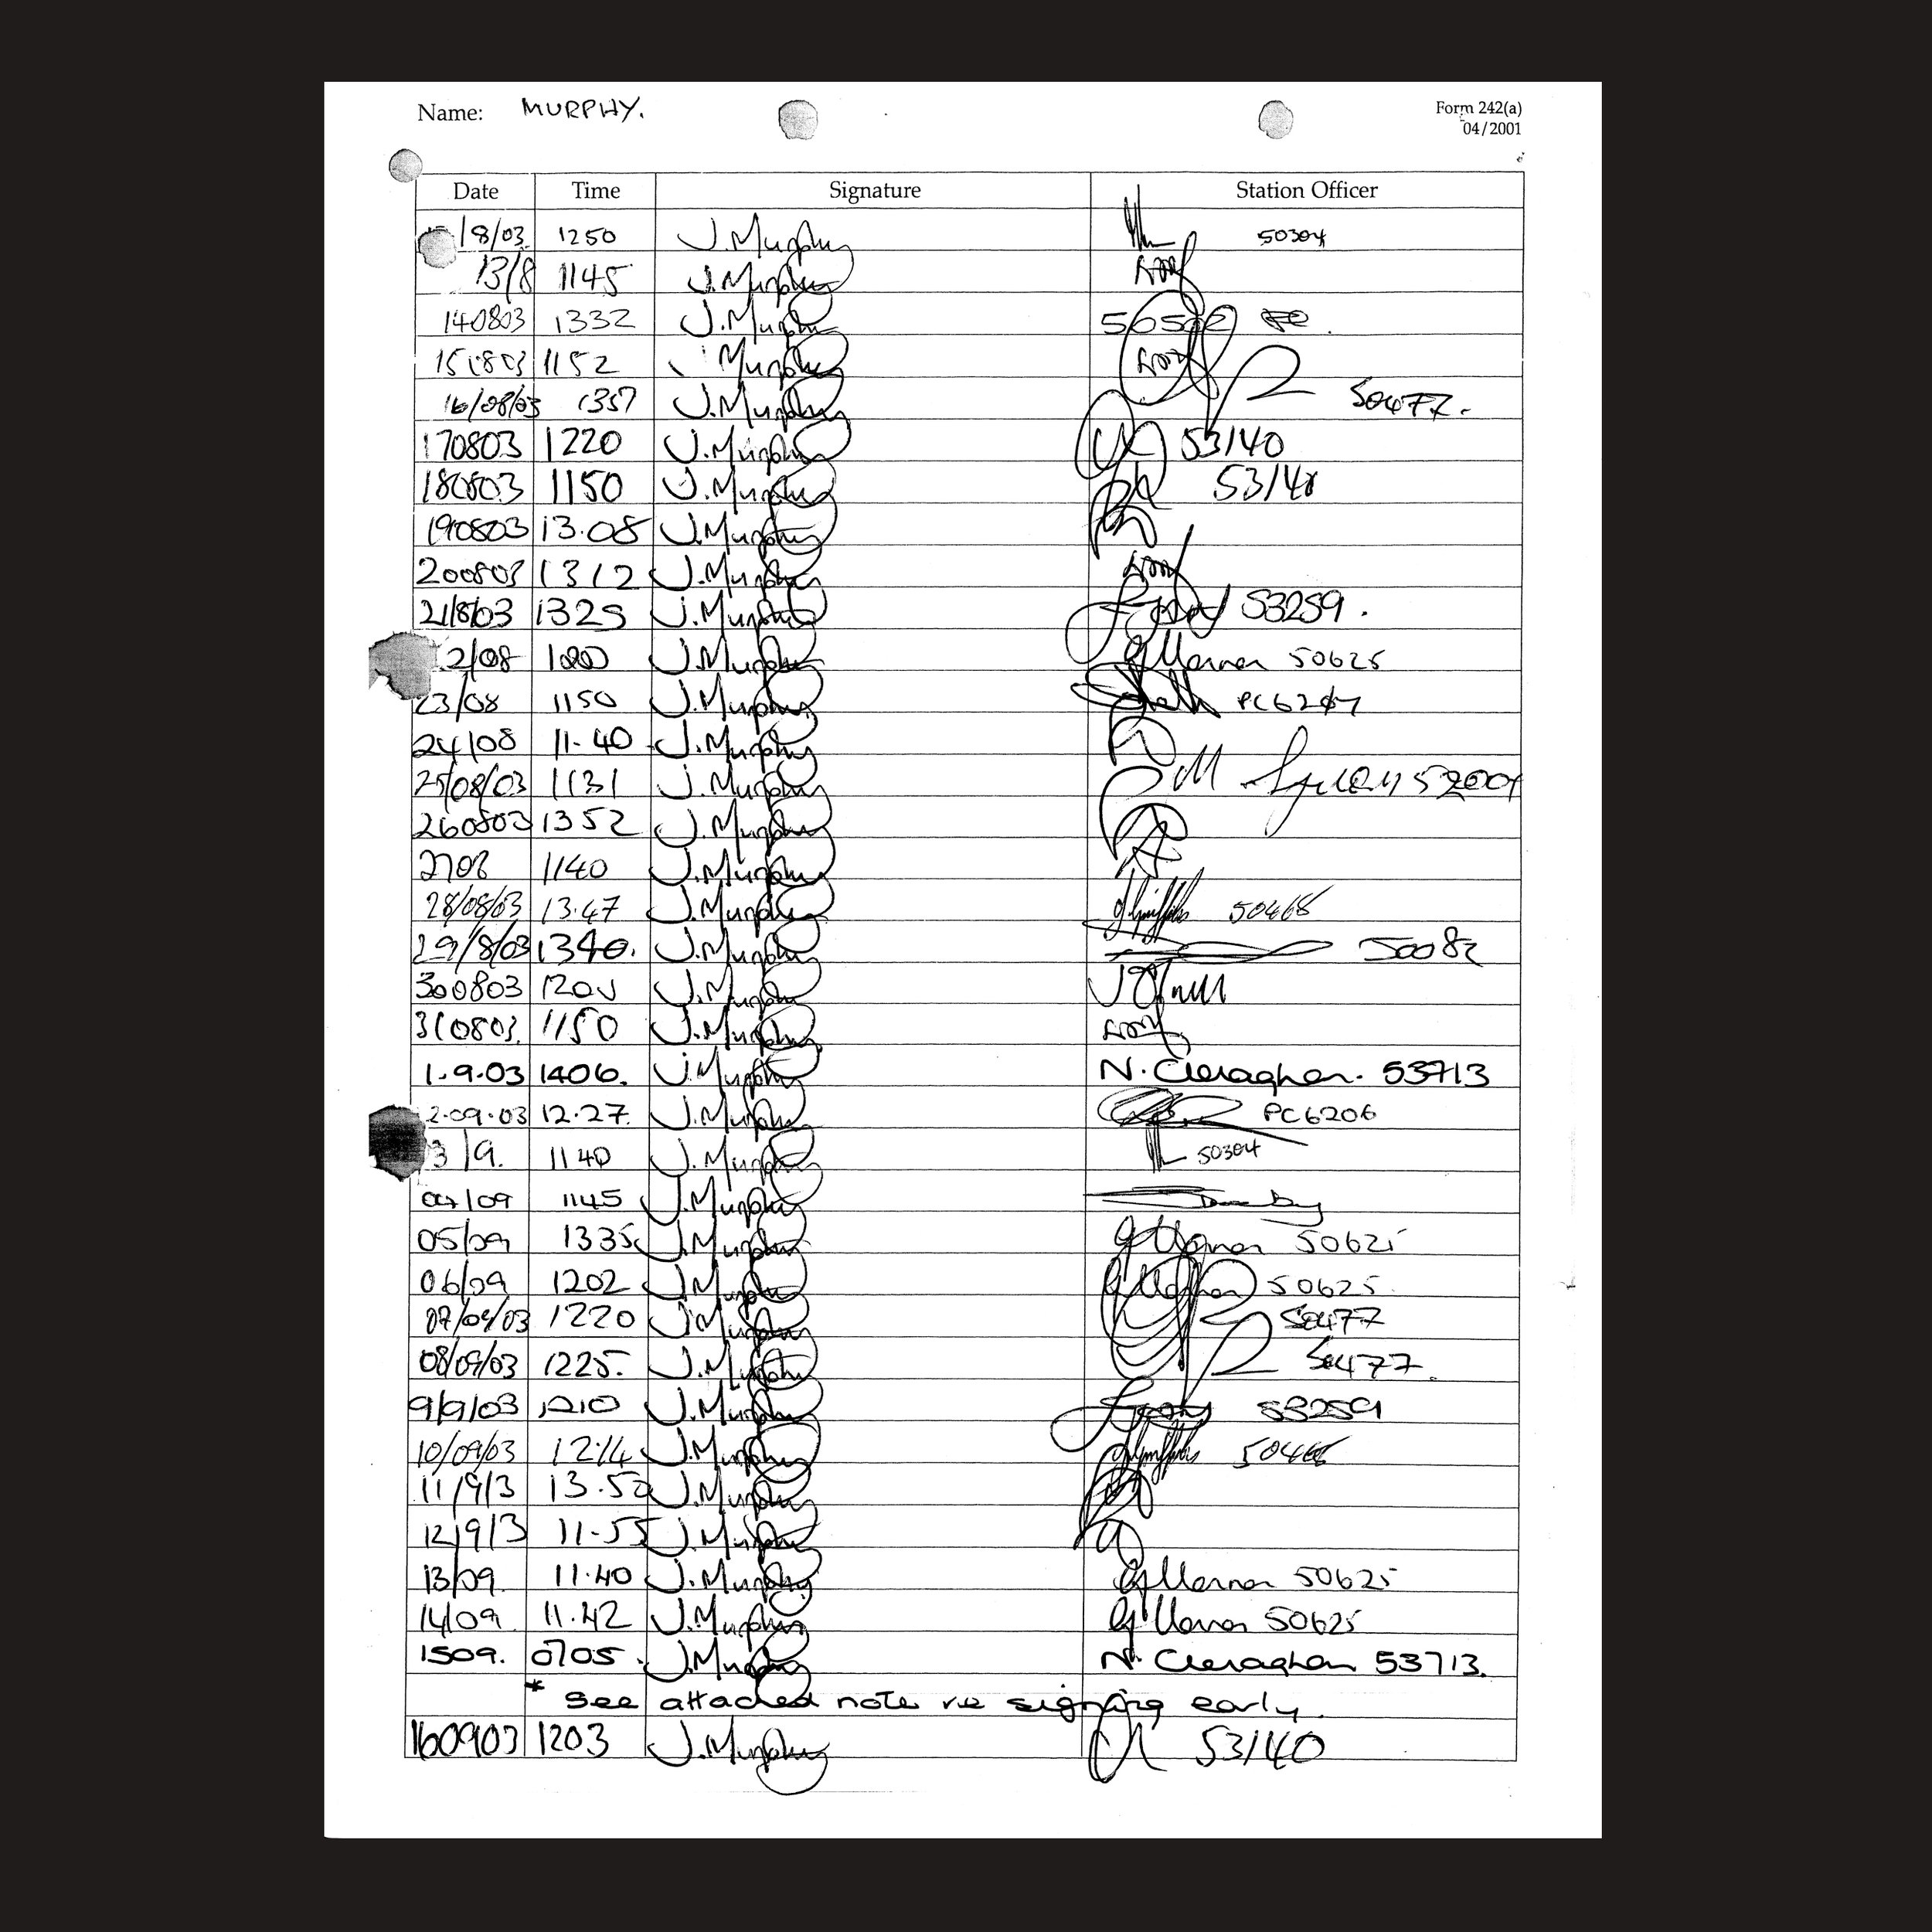 Name: MURPHY.
Form 242(a)
04/2001
Date Time Signature Station Officer
/8/03 1250 J.Murphy 50304
13/8 1145 J.Murphy
140803 1332 J.Murphy
150803 1152 J.Murphy
16/08/03 1357 J.Murphy 50477.
170803 1220 J.Murphy 53140
180803 1150 J.Murphy
190803 13.08 J.Murphy
200803 1312 J.Murphy
21/8/03 1325 J.Murphy 53259.
2/08 J.Murphy 50625
23/08 1150 J.Murphy
24/08 11.40 J.Murphy
25/08/03 1131 J.Murphy
260803 1352 J.Murphy
2708 1140 J.Murphy
28/08/03 13.47 J.Murphy 50468
29/8/03 1340. J.Murphy 50082
300803 J.Murphy
310803. 1150 J.Murphy
1.9.03 1406. J.Murphy N. Cleraghan. 53713
2.09.03 12.27. J.Murphy PC6206
3/9. 1140 J.Murphy 50304
04/09 1145 J.Murphy
05/09 1335 J.Murphy 50625
06/09 1202 J.Murphy 50625.
07/09/03 1220 J.Murphy 50477
08/09/03 1225. J.Murphy 50477.
9/9/03 1210 J.Murphy 53259
10/09/03 12.14 J.Murphy 50468
11/9/3 13.52 J.Murphy
12/9/3 11.55 J.Murphy
13/09. 11.40 J.Murphy 50625
14/09 11.42 J.Murphy 50625
1509. 0705. J.Murphy N. Cleraghan 53713.
* see attached note re signing early.
160903 1203 J.Murphy 53140